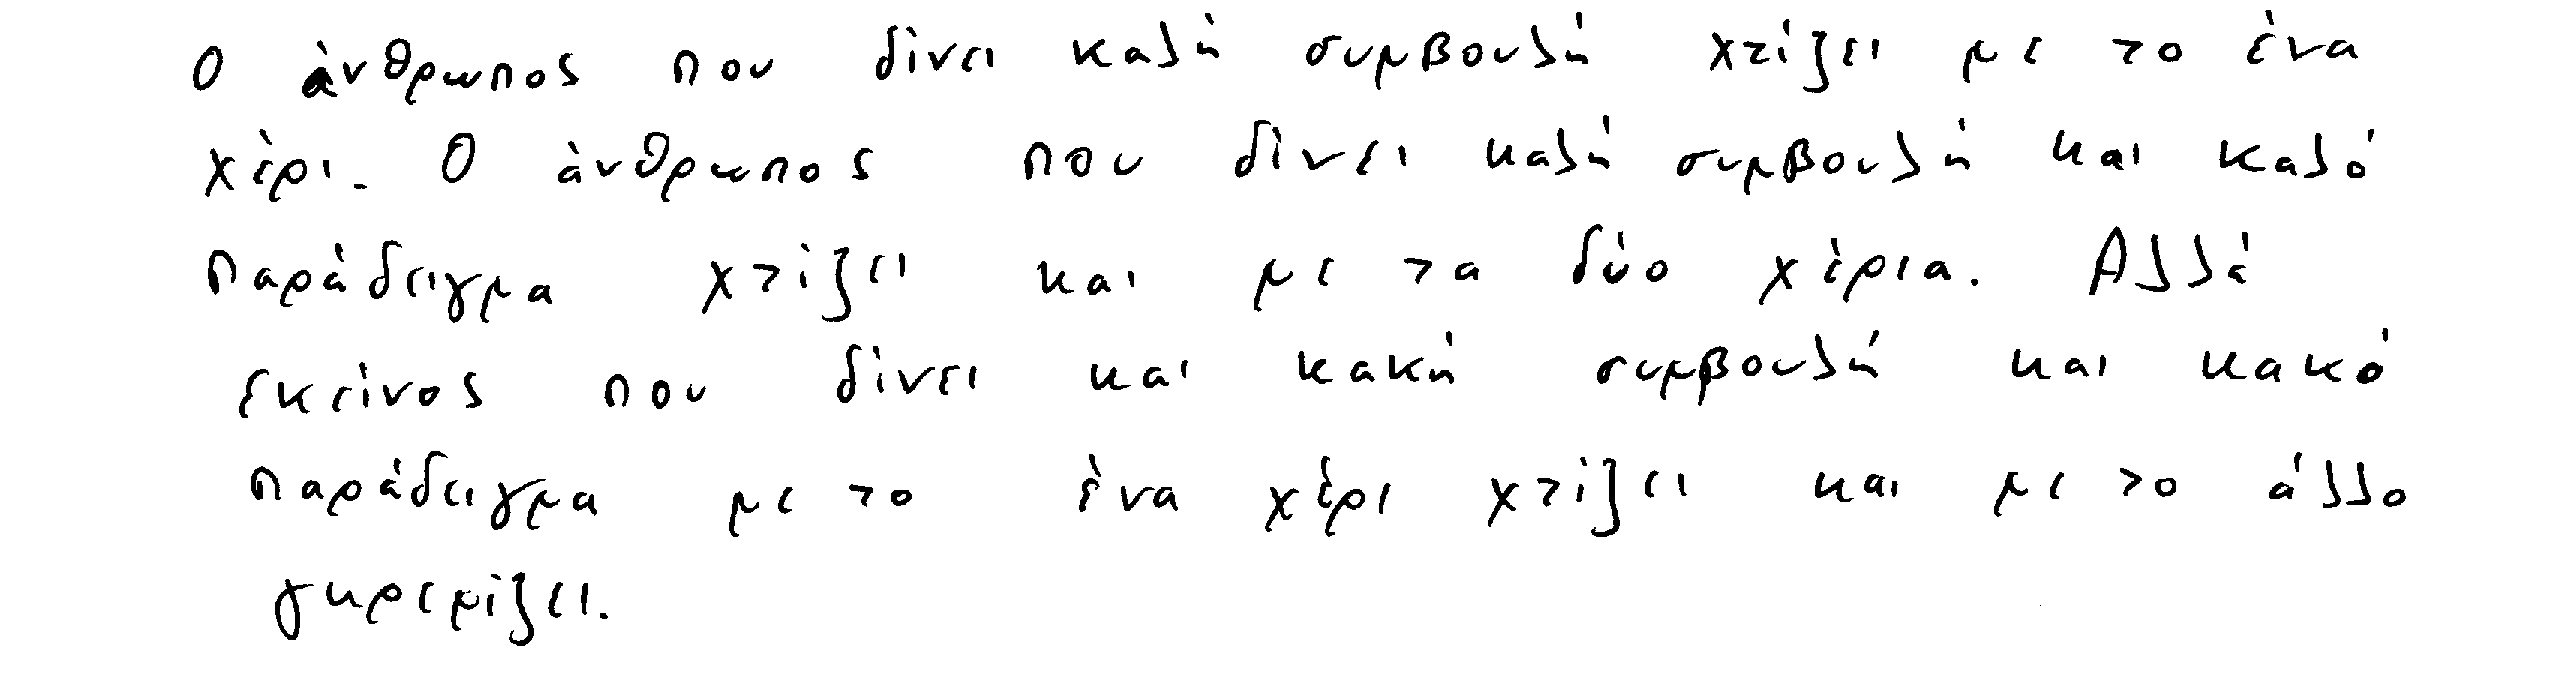 Ο άνθρωπος που δίνει καλή συμβουλή χτίζει με το ένα
χέρι. Ο άνθρωπος που δίνει καλή συμβουλή και καλό
παράδειγμα χτίζει και με τα δύο χέρια. Αλλά
εκείνος που δίνει και κακή συμβουλή και κακό
παράδειγμα με το ένα χέρι χτίζει και με το άλλο
γκρεμίζει.